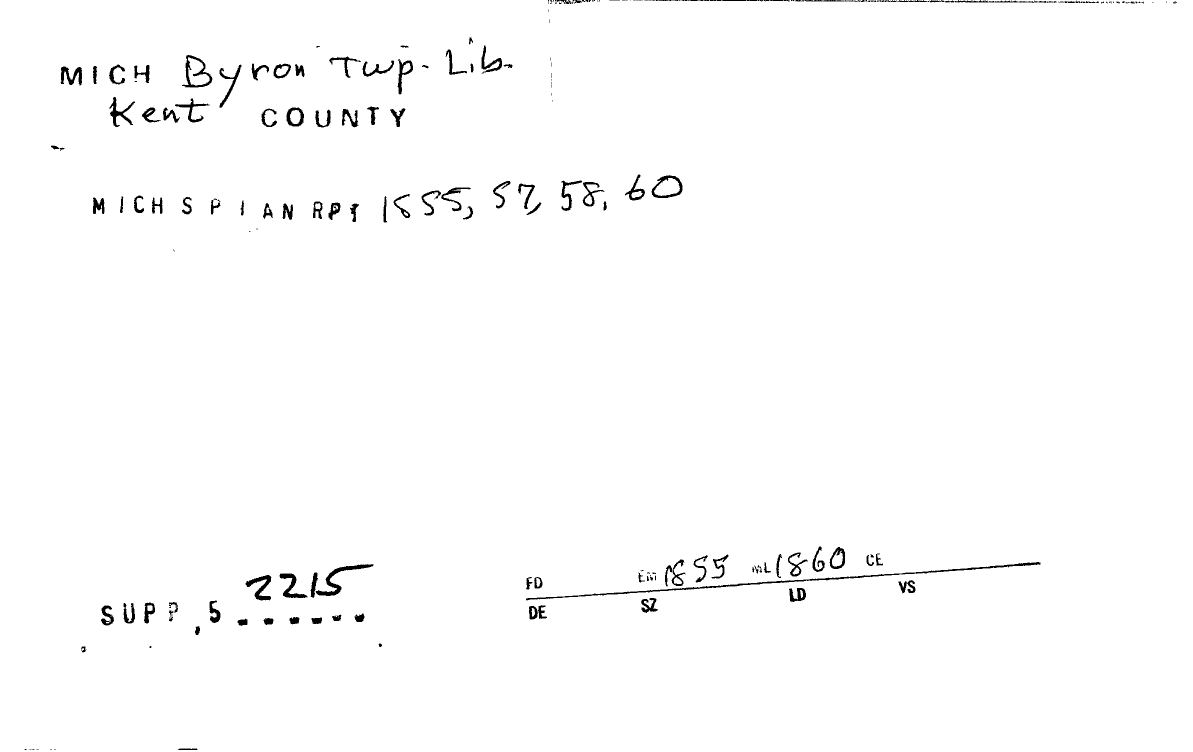 MICH Byron Twp. Lib.
Kent COUNTY
MICH S P I AN RPT 1855, 57, 58, 60
2215
SUPP, 5 ......
FD EM 1855 ML 1860 CE
DE SZ LD VS